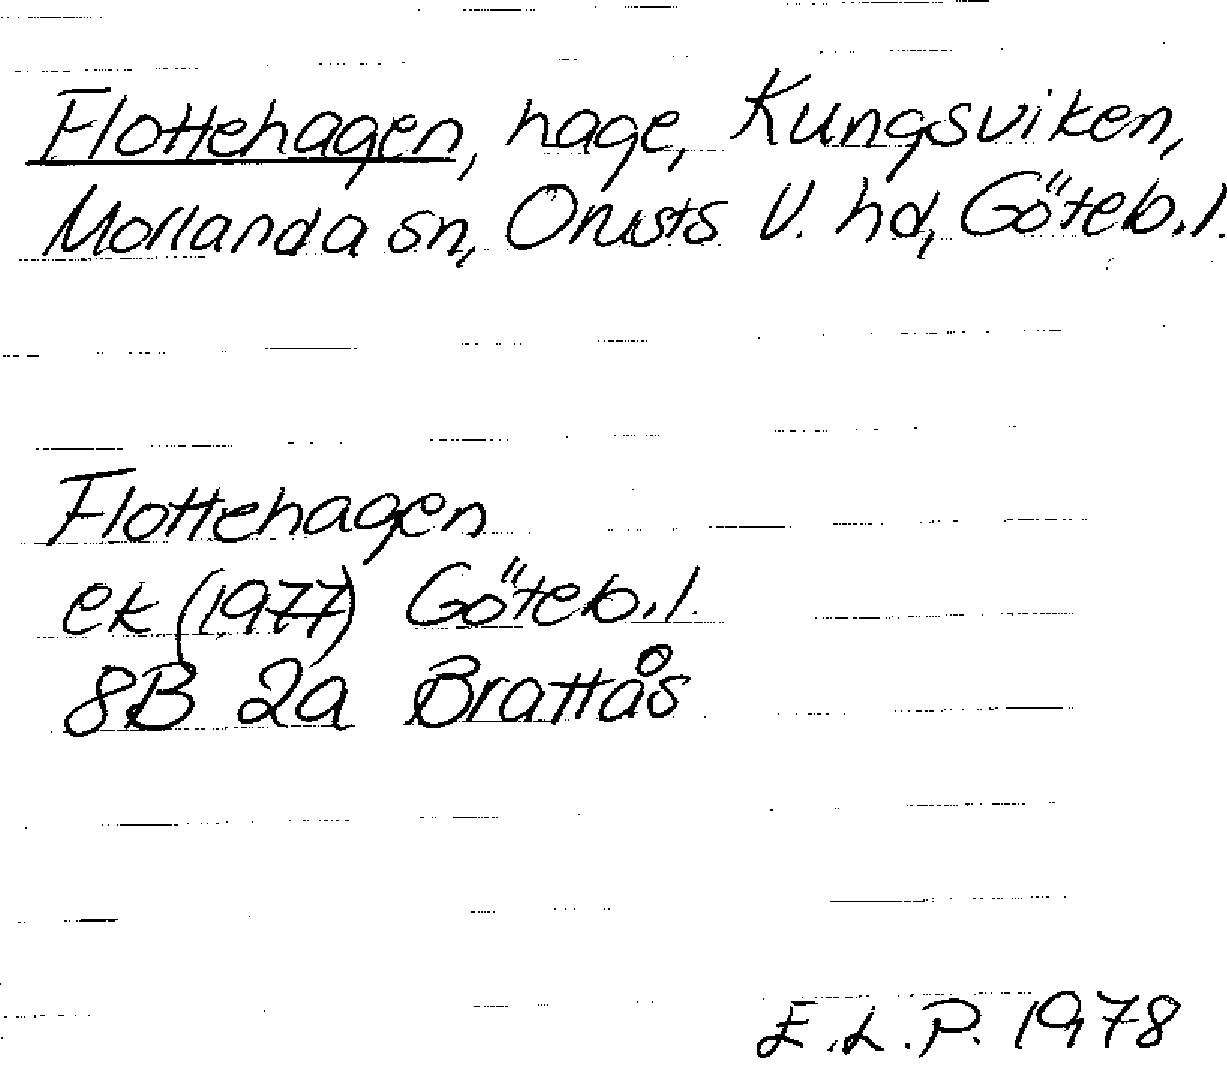 Flottehagen, hage, Kungsviken,
Morlanda sn, Orusts V. hd, Göteb.l.
Flottehagen
ek (1977) Göteb.l.
8B 2a Brattås
E.L.P. 1978